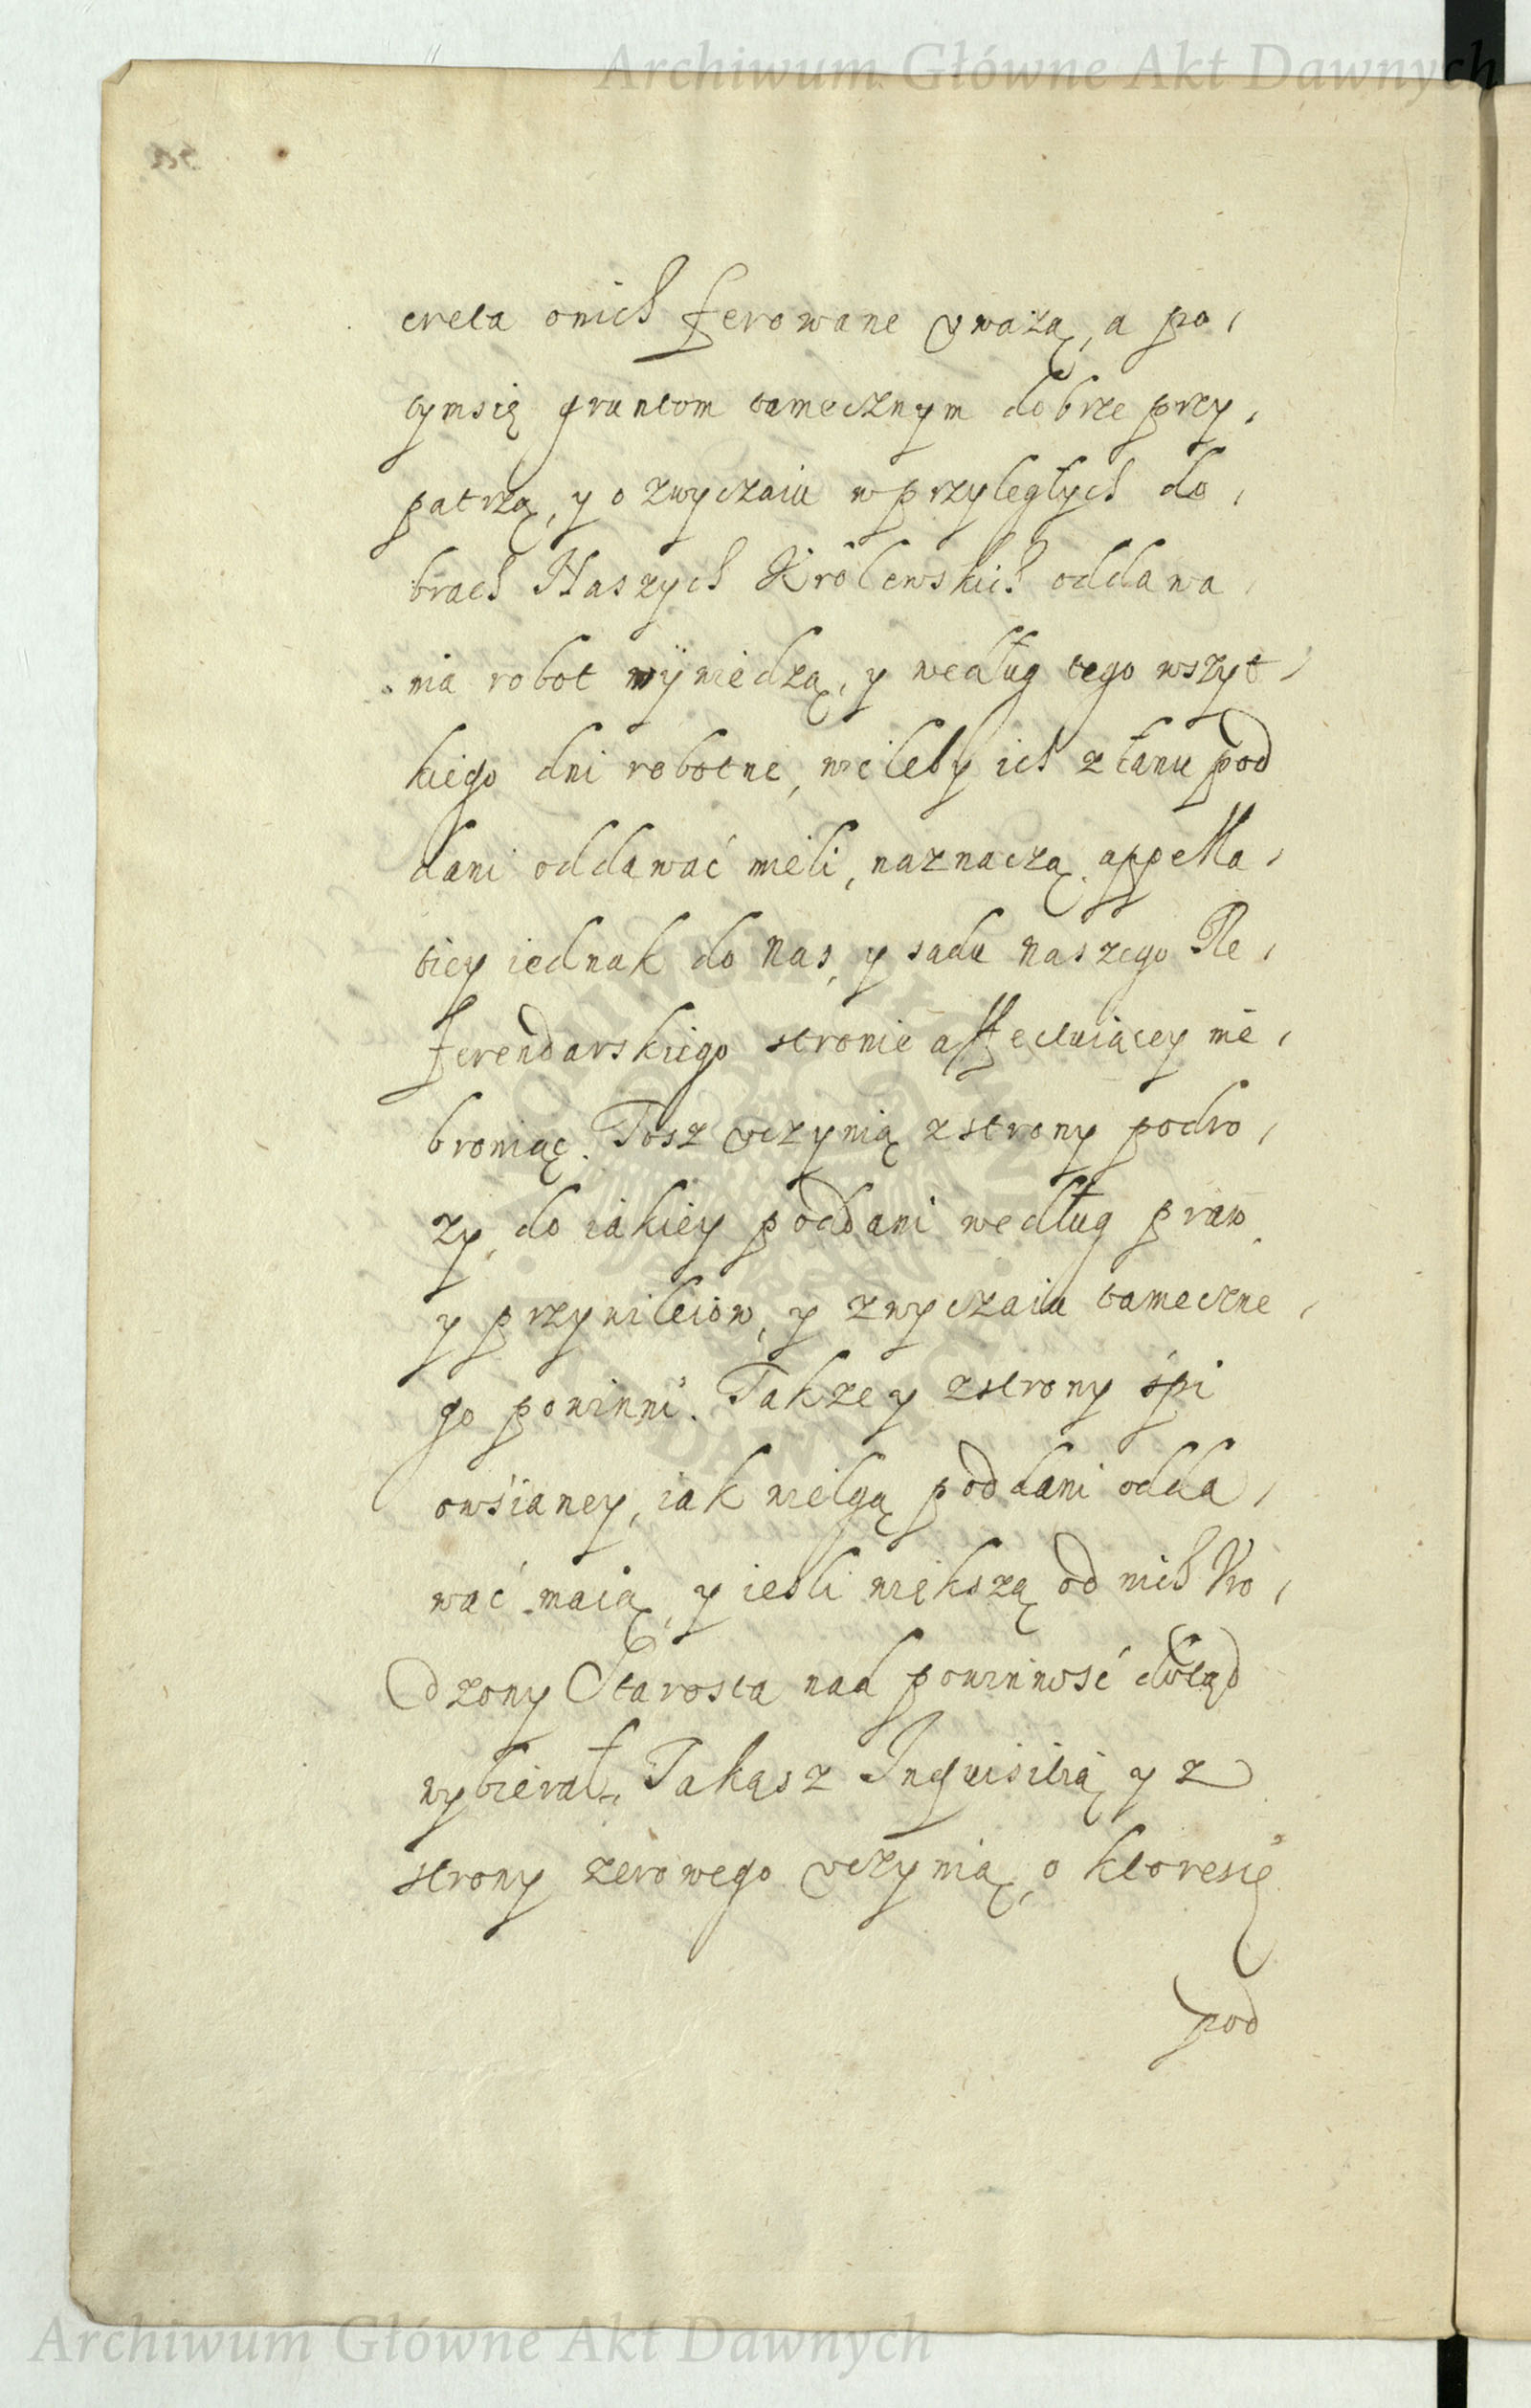 Archiwum Główne Akt Dawnych
creta onich ferowane vważą, a po,
tymsię gruntom tamecznym dobrze przy,
patrzą, y o zwyczaiu wprzyległych do,
brach Naszych Królewskich oddawa,
nia robot wywiedzą, y według tego wszyt,
kiego dni robotne, wieleby ich z łanu pod
dani oddawać mieli, naznaczą. appella,
tiey iednak do Nas, y sądu Naszego Re,
ferendarskiego stronie affectuiącey nie,
broniąc. Tosz vczynią zstrony podro,
zy, do iakiey poddani według praw
y przywileiow, y zwyczaiu tameczne,
go powinni. Takze y zstrony śpi
owsianey, iak wielgą poddani odda,
wać maią, y iesli większą od nich Vro,
dzony Starosta nad powinność dotąd
wybierał. Takąsz Inquisitią y z
strony żerowego vczynią, o ktoresię
pod
Archiwum Główne Akt Dawnych